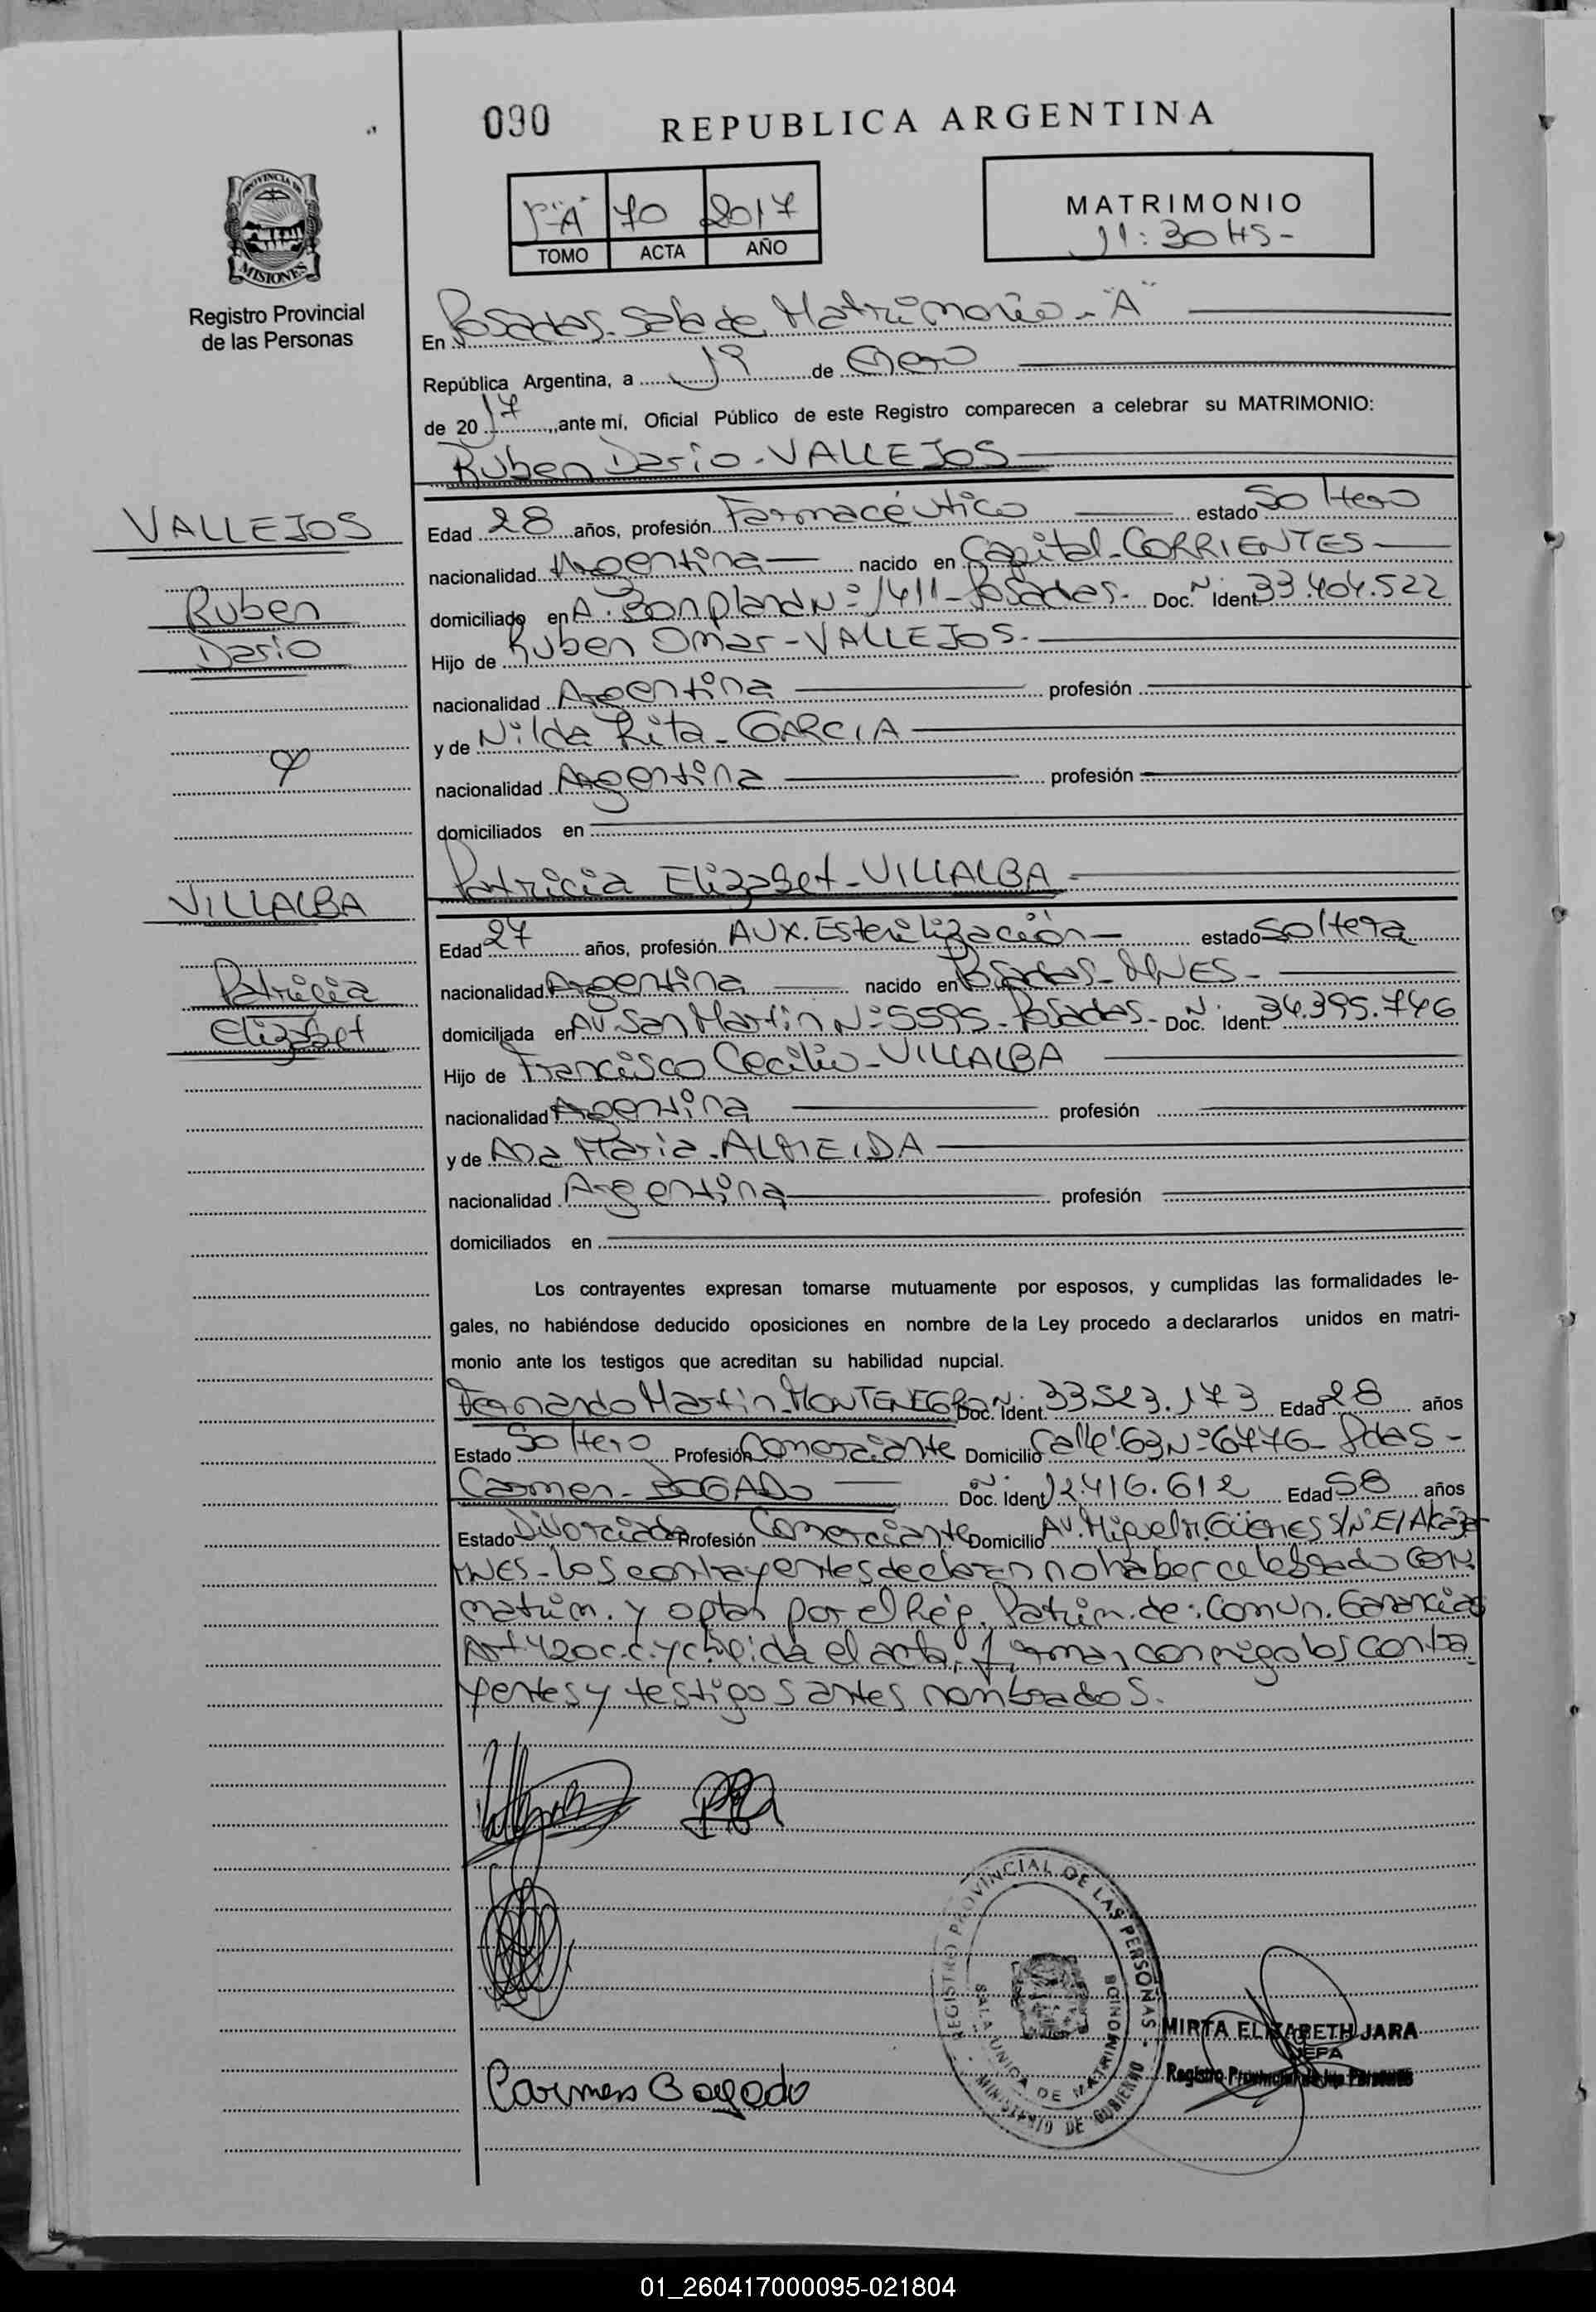 090
REPUBLICA ARGENTINA
1º"A" 70 2017
TOMO ACTA AÑO
MATRIMONIO
11:30 HS-
PROVINCIA DE
MISIONES
Registro Provincial
de las Personas
En Posadas-Sala de Matrimonio-"A"
República Argentina, a 1º de
de 2017, ante mí, Oficial Público de este Registro comparecen a celebrar su MATRIMONIO:
Ruben Dario-VALLEJOS
VALLEJOS
Ruben
Dario
Edad 28 años, profesión Farmacéutico estado Soltero
nacionalidad Argentina nacido en Capital-CORRIENTES-
domiciliado en A. Bonpland Nº 1411-Posadas- Doc. Nº Ident 33.404.522
Hijo de Ruben Omar-VALLEJOS.
nacionalidad Argentina profesión
y de Nilda Rita-GARCIA
y
nacionalidad Argentina profesión
domiciliados en
Patricia Elizabet-VILLALBA
VILLALBA
Patricia
Elizabet
Edad 27 años, profesión AUX. Esterilización- estado Soltera
nacionalidad Argentina nacido en Posadas-MNES-
domiciliada en AV. San Martin Nº 5595-Posadas- Doc. Nº Ident. 34.395.746
Hijo de Francisco Cecilio-VILLALBA
nacionalidad Argentina profesión
y de Ana Maria-ALMEIDA
nacionalidad Argentina profesión
domiciliados en
Los contrayentes expresan tomarse mutuamente por esposos, y cumplidas las formalidades le-
gales, no habiéndose deducido oposiciones en nombre de la Ley procedo a declararlos unidos en matri-
monio ante los testigos que acreditan su habilidad nupcial.
Fernando Martin-MONTENEGRO Doc. Nº Ident. 33.523.173 Edad 28 años
Estado Soltero Profesión Comerciante Domicilio Calle:63 Nº 6476-Pdas-
Carmen-BOGADO Doc. Nº Ident 12.416.612 Edad 58 años
Estado Divorciada Profesión Comerciante Domicilio AV. Miguel M. Güemes S/Nº El Alcázar
MNES-los contrayentes declaran no haber celebrado Conv.
matrim. y optan por el Rég. Patrim. de: Comun. Ganancias
Art 420 c.c. y leída el acta, firman conmigo los contra
yentes y testigos antes nombrados.
REGISTRO PROVINCIAL DE LAS PERSONAS
SALA UNICA DE MATRIMONIOS
MINISTERIO DE GOBIERNO
MIRTA ELIZABETH JARA
JEFA
Registro Provincial de las Personas
Carmen Bogado
01_260417000095-021804